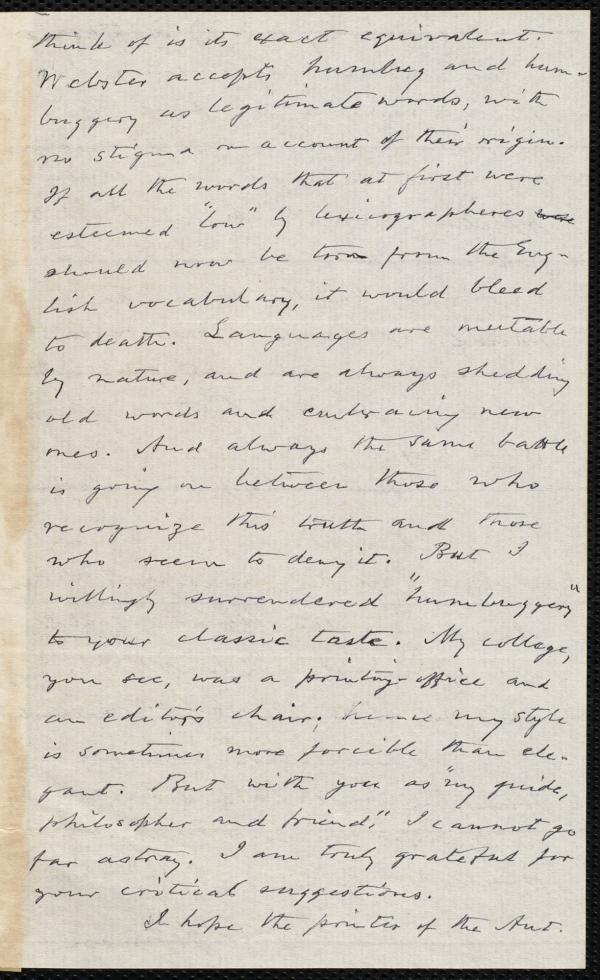 think of is its exact equivalent.
Webster accepts humbug and hum-
buggery as legitimate words, with
no stigma on account of their origin.
If all the words that at first were
esteemed "low" by lexicographeres were
should now be torn from the Eng-
lish vocabulary, it would bleed
to death. Languages are mutable
by nature, and are always shedding
old words and embracing new
ones. And always the same battle
is going on between those who
recognize this truth and those
who seem to deny it. But I
willingly surrendered "humbuggery"
to your classic taste. My college,
you see, was a printing-office and
an editor's chair; hence my style
is sometimes more forcible than ele-
gant. But with you as "my guide,
philosopher and friend," I cannot go
far astray. I am truly grateful for
your critical suggestions.
I hope the printer of the Aut.